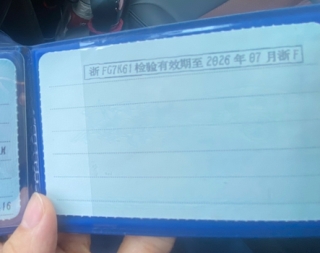 浙FG7K61检验有效期至2026年07月浙F
M
16